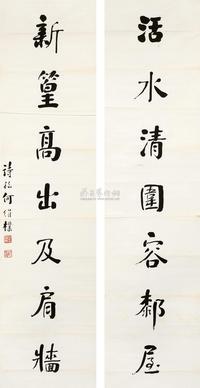 活水清圍容鄰屋
新篁高出及肩牆
詩孫何維樸